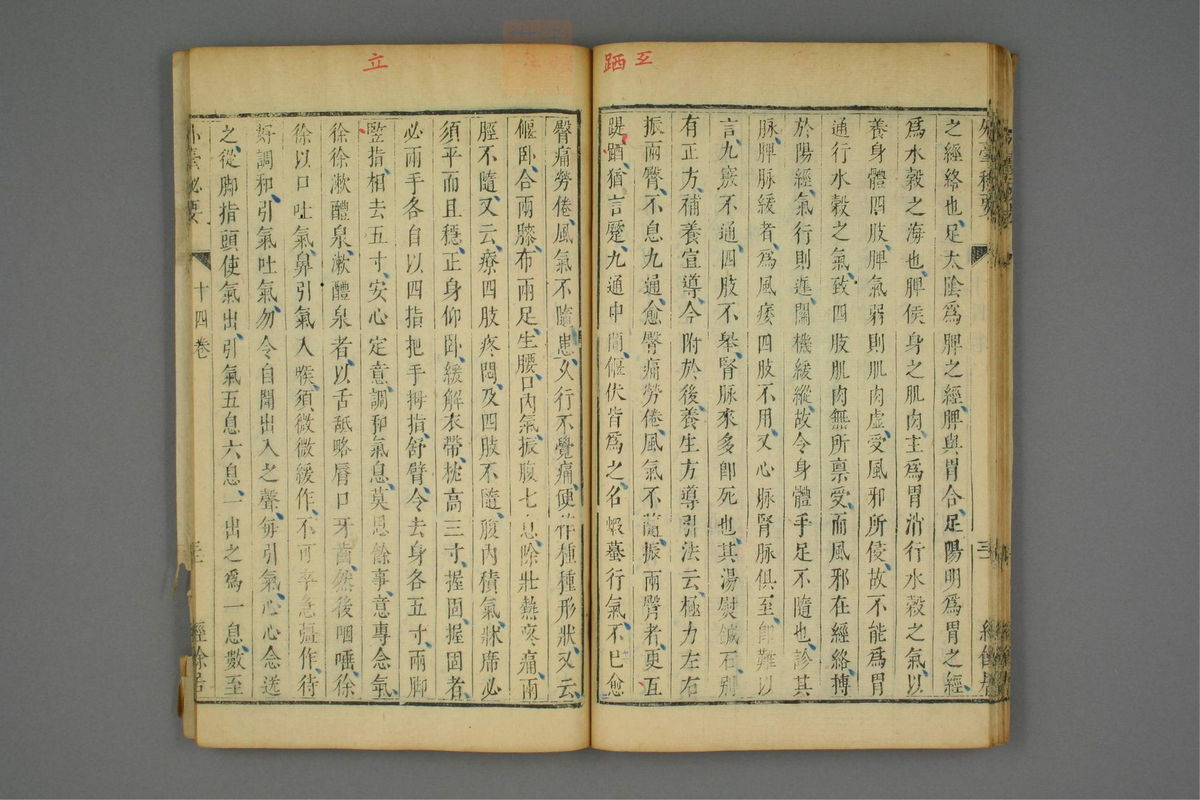 互
踻
外臺秘要
之經絡也足太陰爲脾之經脾與胃合足陽明爲胃之經
爲水穀之海也脾侯身之肌肉主爲胃消行水穀之氣以
養身體四肢脾氣弱則肌肉虛受風邪所侵故不能爲胃
通行水穀之氣致四肢肌肉無所禀受而風邪在經絡搏
於陽經氣行則遲關機緩縱故令身體手足不隨也診其
脉脾脉緩者爲風痿四肢不用又心脉腎脉俱至即難以
言九竅不通四肢不舉腎脉來多即死也其湯熨鍼石别
有正方補養宣導今附於後養生方導引法云極力左右
振兩臀不息九通愈臀痛勞倦風氣不隨振兩臀者更互
踶踻猶言蹙九通中間偃伏皆爲之名蝦蟇行氣不已愈
立
臀痛勞倦風氣不隨患久行不覺痛便作種種形狀又云
偃卧合兩膝布兩足生腰口内氣振腹七息除壯熱疼痛兩
脛不隨又云療四肢疼悶及四肢不隨腹内積氣牀席必
須平而且穩正身仰卧緩解衣帶枕高三寸握固握固者
必兩手各自以四指把手拇指舒臂令去身各五寸兩脚
竪指相去五寸安心定意調和氣息莫思餘事意專念氣
徐徐漱醴泉漱醴泉者以舌舐略脣口牙齒然後咽唾徐
徐以口吐氣鼻引氣入喉須微微緩作不可卒急強作待
好調和引氣吐氣勿令自聞出入之聲每引氣心心念送
之從脚指頭使氣出引氣五息六息一出之爲一息數至
外臺秘要
十四卷
三
經餘居